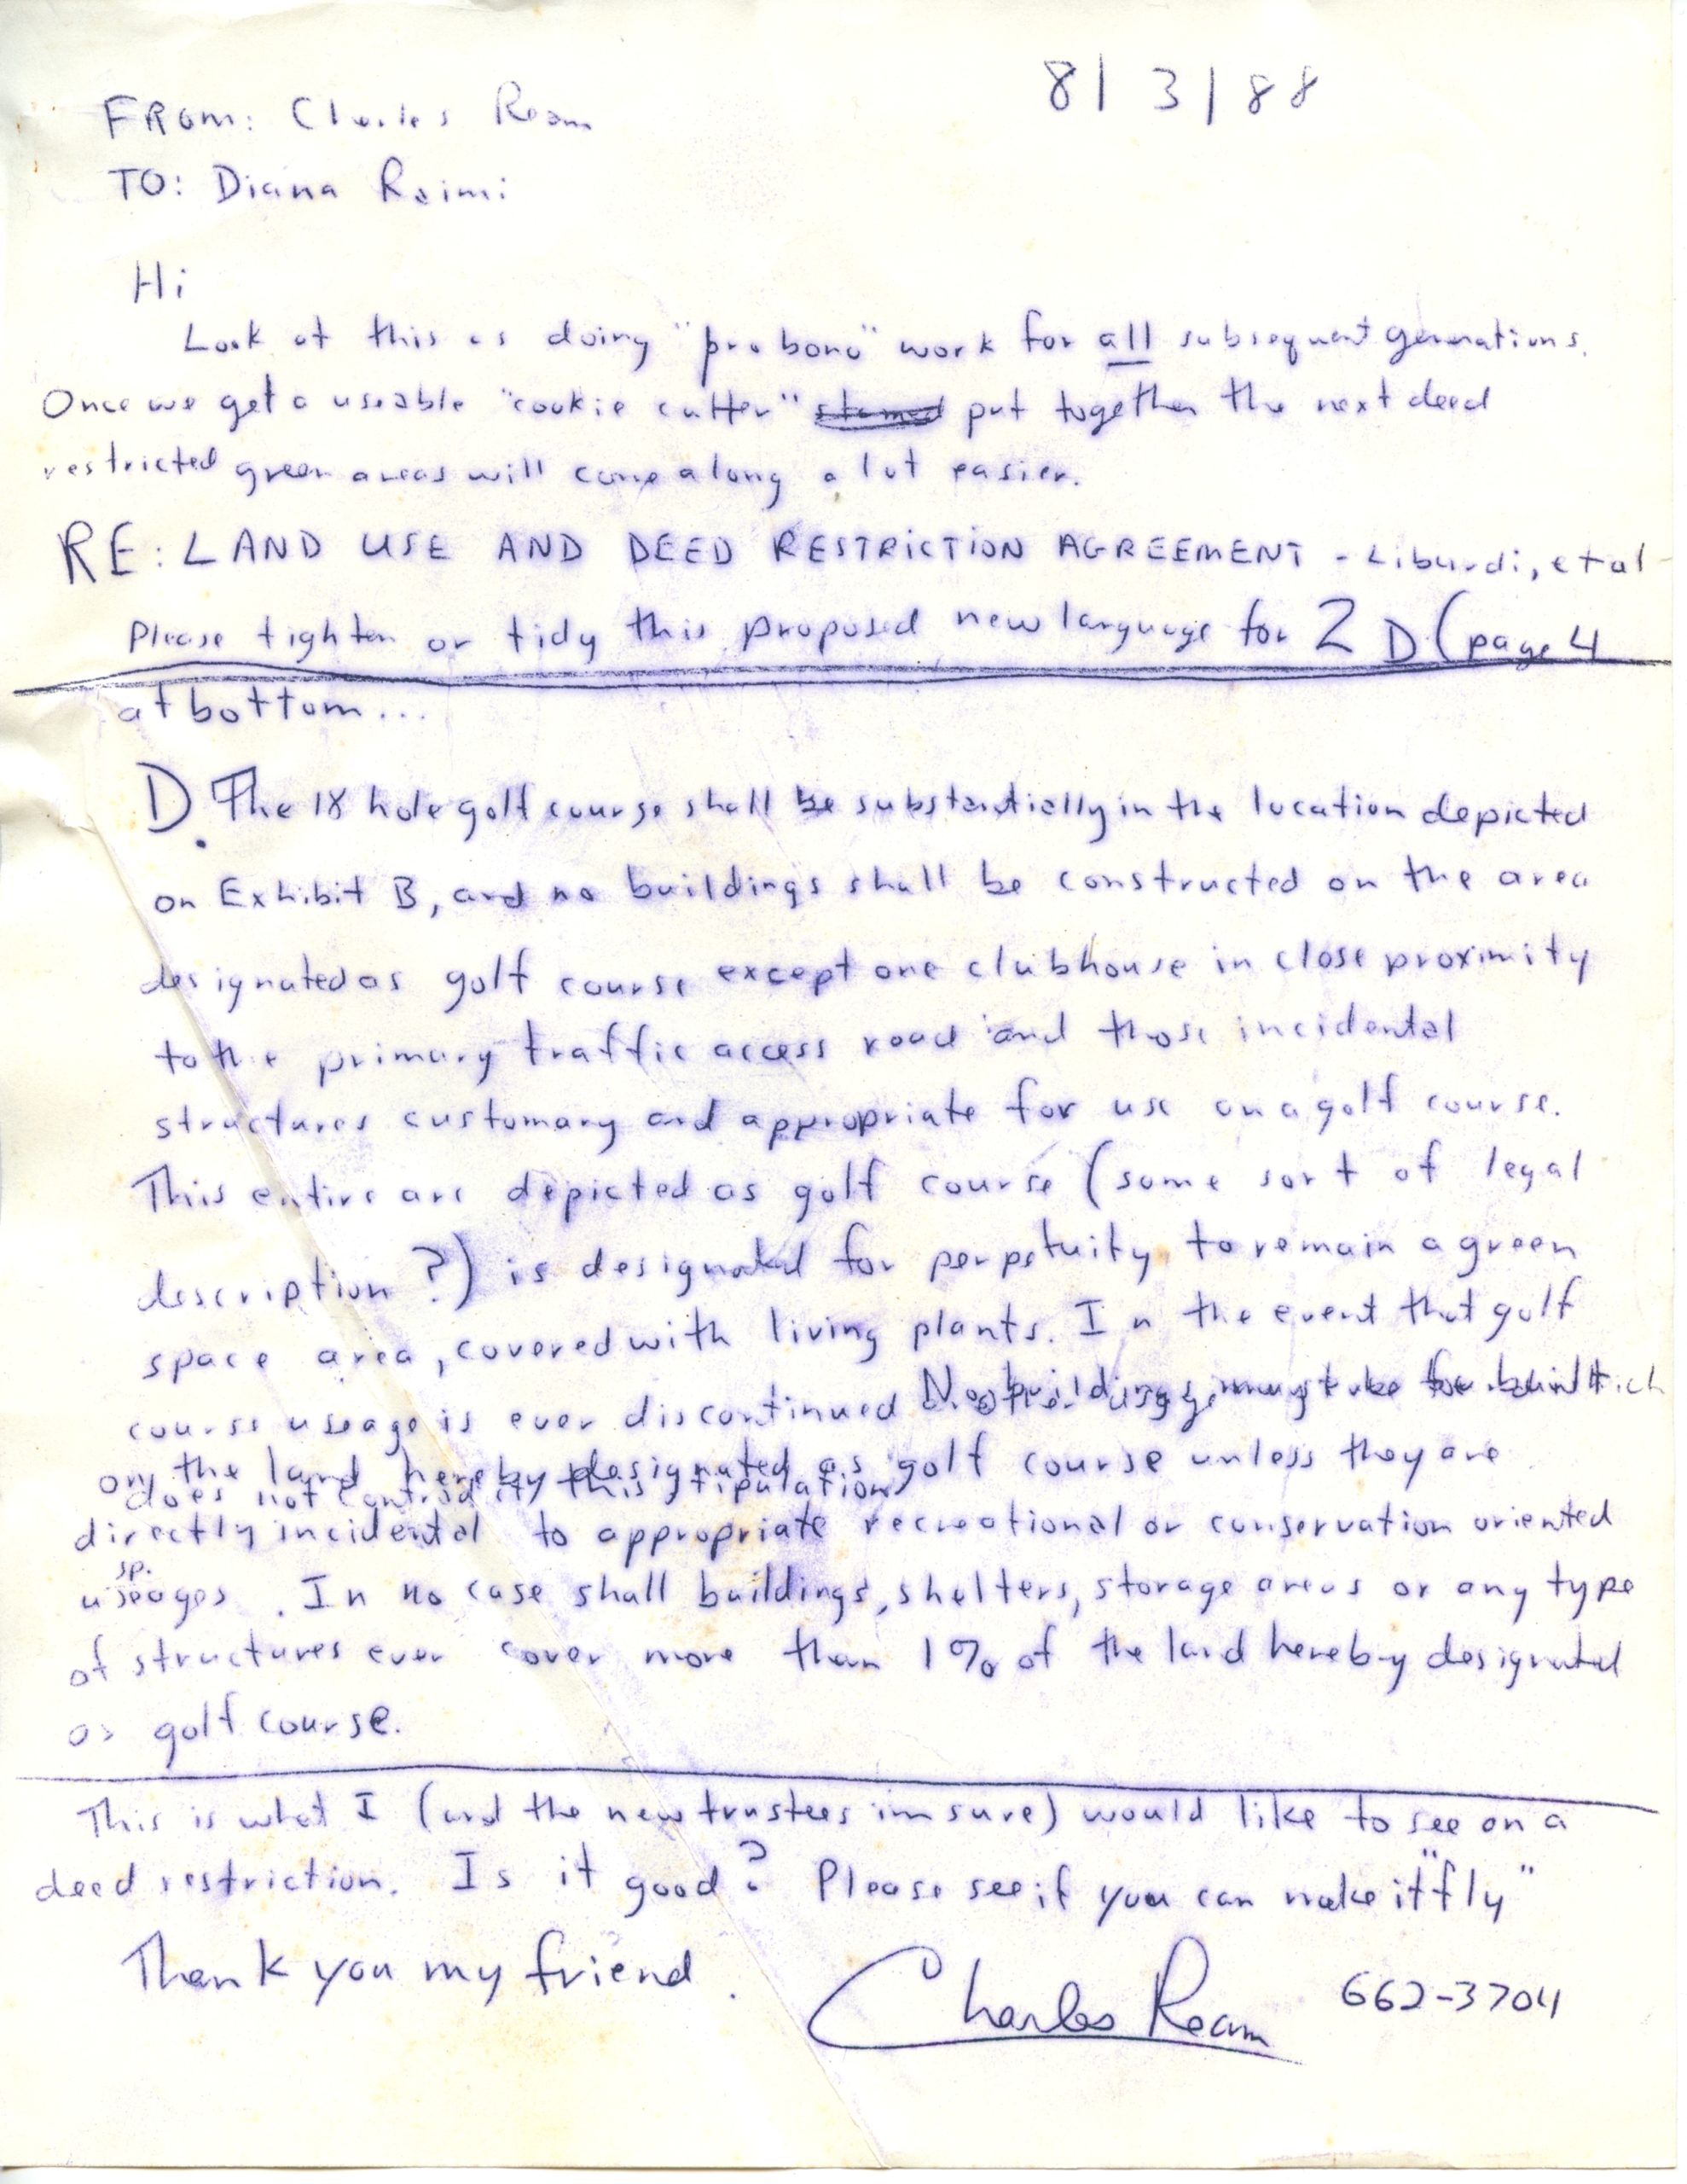 8/3/88
FROM: Charles Ream
TO: Diana Raimi
Hi
Look at this as doing "pro bono" work for all subsequent generations.
Once we get a useable "cookie cutter" put together the next deed
restricted green areas will come along a lot easier.
RE: LAND USE AND DEED RESTRICTION AGREEMENT - Liburdi, et al
Please tighten or tidy this proposed new language for 2 D (page 4
at bottom...
D. The 18 hole golf course shall be substantially in the location depicted
on Exhibit B, and no buildings shall be constructed on the area
designated as golf course except one clubhouse in close proximity
to the primary traffic access road and those incidental
structures customary and appropriate for use on a golf course.
This entire are depicted as golf course (some sort of legal
description?) is designated for perpetuity to remain a green
space area, covered with living plants. In the event that golf
course useage is ever discontinued No buildings may be built
on the land hereby designated as golf course unless they are
does not contradict this stipulation
directly incidental to appropriate recreational or conservation oriented
sp.
useages. In no case shall buildings, shelters, storage areas or any type
of structures ever cover more than 1% of the land hereby designated
as golf course.
This is what I (and the new trustees im sure) would like to see on a
deed restriction. Is it good? Please see if you can make it "fly"
Thank you my friend.
Charles Ream 662-3704